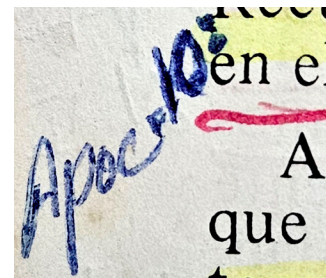 Apoc-10:
en e
A
que